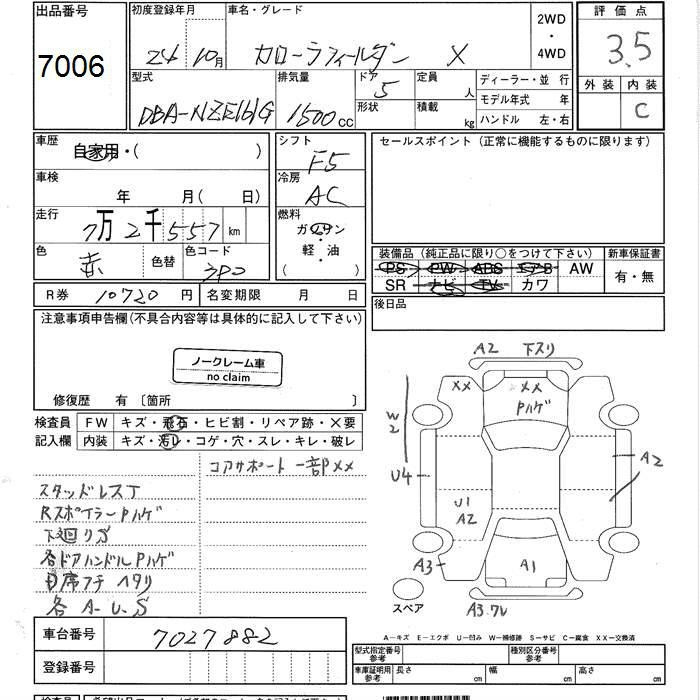 出品番号 初度登録年月 車名・グレード 2WD・4WD 評価点
7006 24 10月 カローラフィールダー X 3.5
型式 排気量 ドア 5 定員 人 ディーラー・並行 外装 内装
DBA-NZE161G 1500cc 形状 積載 kg モデル年式 年 C
ハンドル 左・右
車歴 自家用・( ) シフト F5 セールスポイント (正常に機能するものに限ります)
車検 年 月 ( 日) 冷房 AC
走行 7万2千557km 燃料 ガソリン・軽油 ( )
色 赤 色替 色コード 3P0 装備品 (純正品に限り○をつけて下さい) 新車保証書
PS PW ABS エアB AW 有・無
SR ナビ TV カワ
R券 10720円 名変期限 月 日 後日品
注意事項申告欄(不具合内容等は具体的に記入して下さい)
ノークレーム車
no claim
修復歴 有 〔箇所 〕
検査員 FW キズ・飛石・ヒビ割・リペア跡・X要
記入欄 内装 キズ・汚レ・コゲ・穴・スレ・キレ・破レ
コアサポート 一部XX
スタッドレスT
Rスポイラー Pハゲ
下廻りS
各ドアハンドル Pハゲ
席フチ ヘタリ
各 A-U.S
A2 下スリ
XX XX
Pハゲ
W2
U4 U1 A2 A2
A3 A1
スペア A3.ワレ
車台番号 7027882
登録番号
A−キズ E−エクボ U−凹み W−補修跡 S−サビ C−腐食 XX−交換済
型式指定番号 参考 種別区分番号 参考
車庫証明用 参考 長さ cm 幅 cm 高さ cm